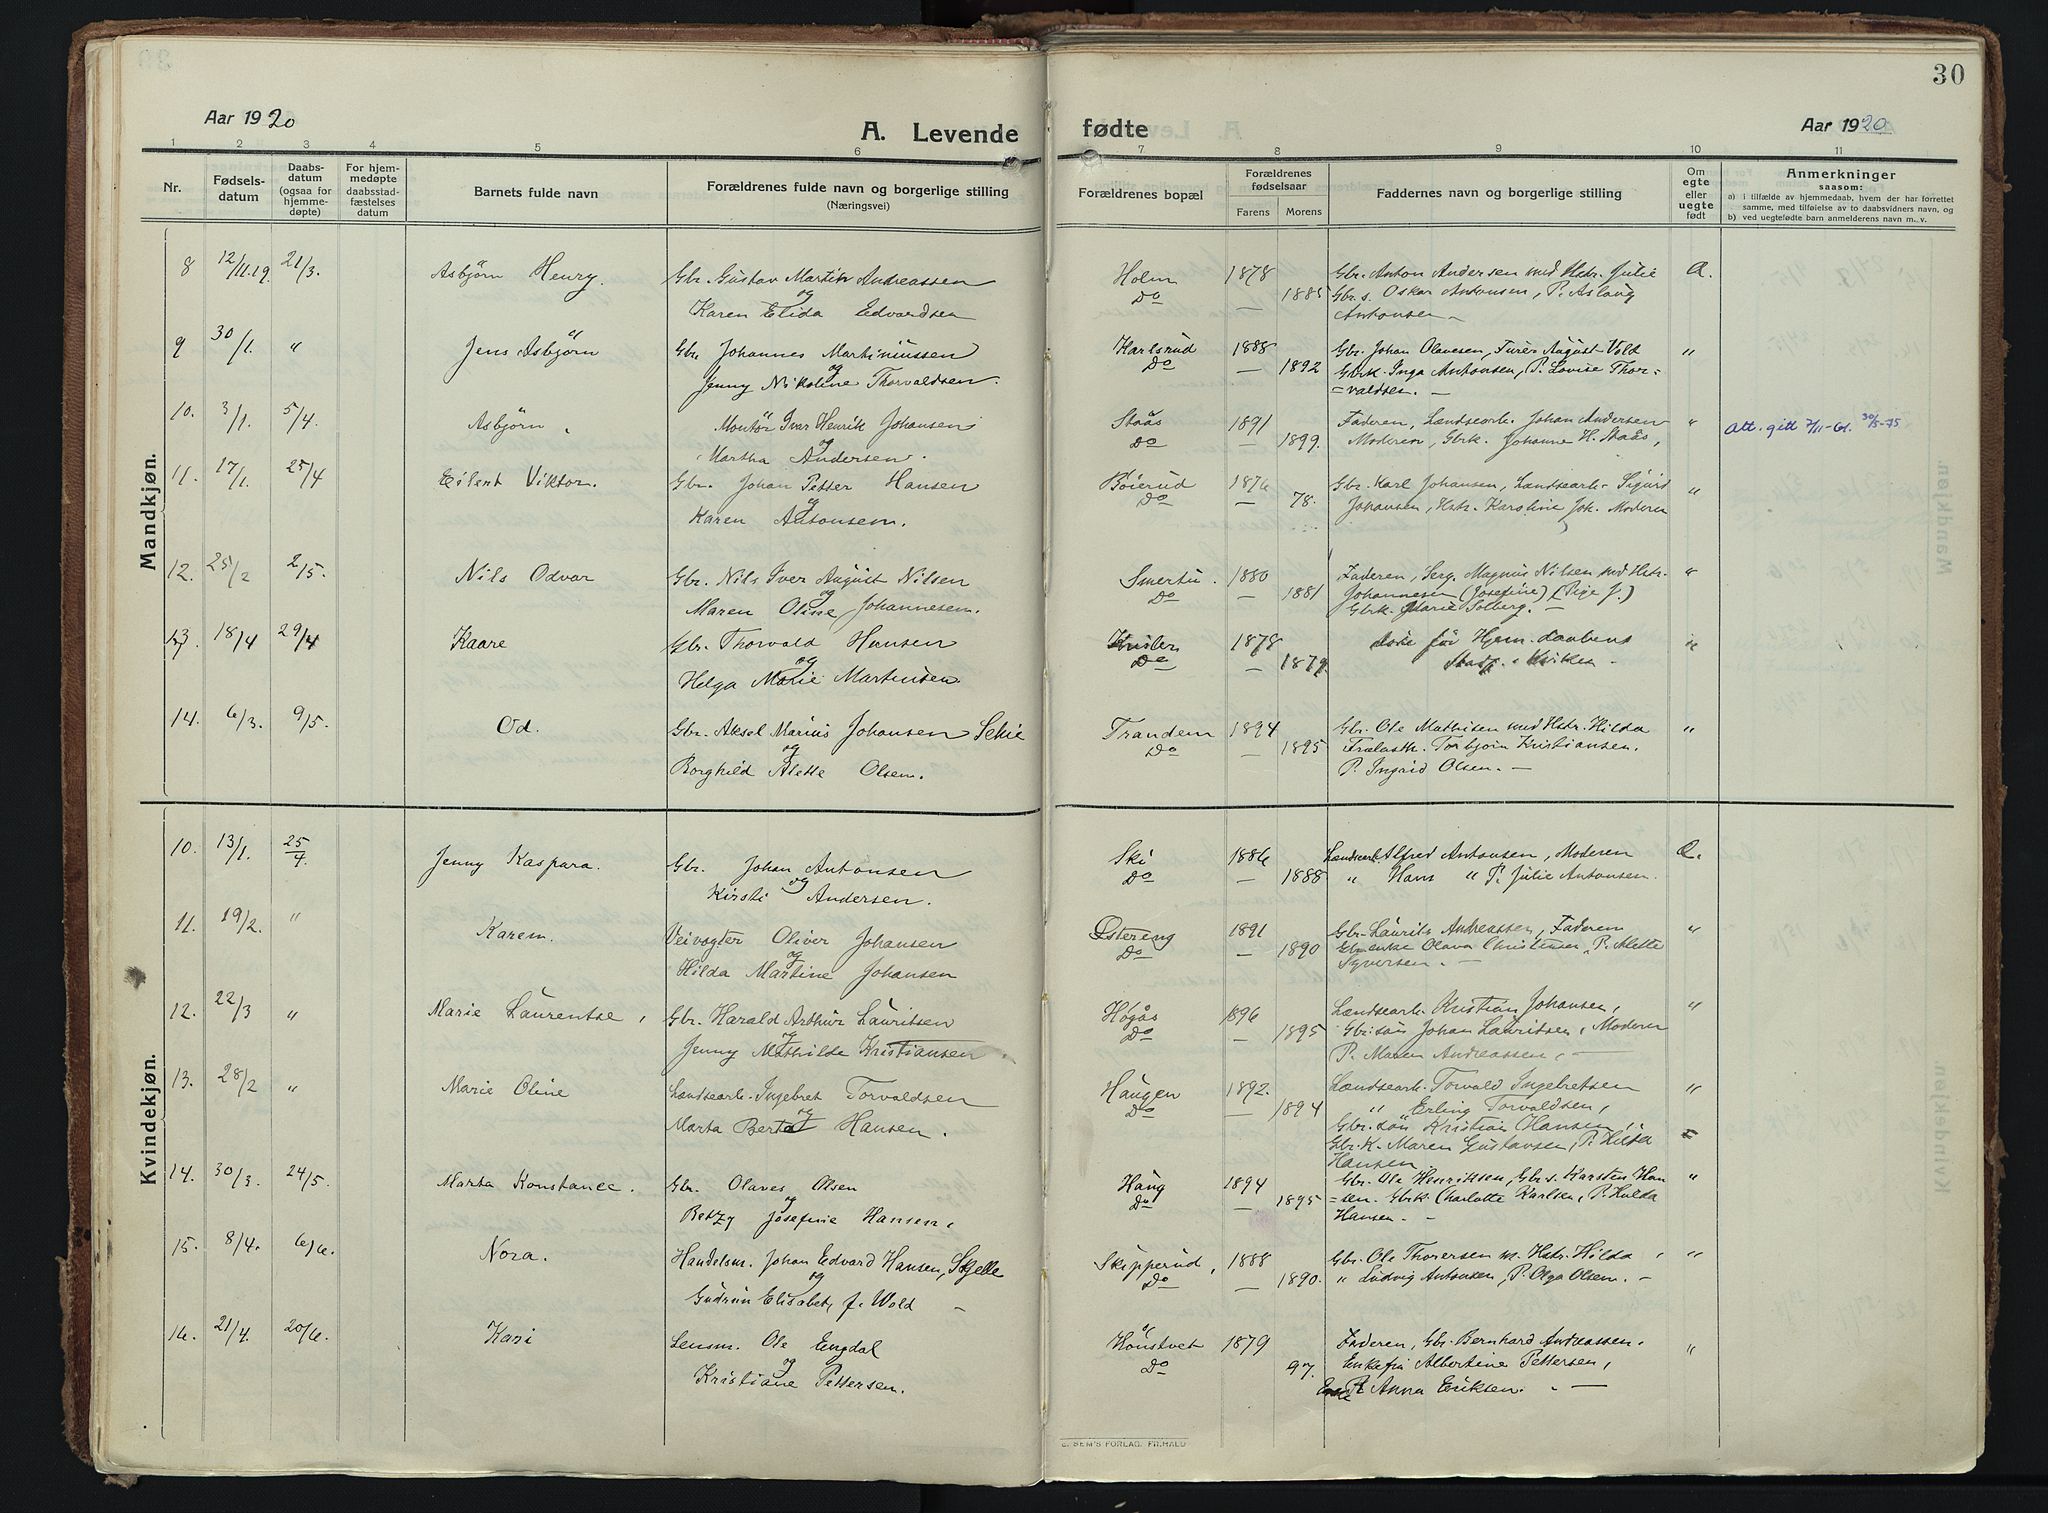 30
Aar 1920
A. Levende fødte
Aar 1920
1 2 3 4 5 6 7 8 9 10 11
Nr.
Fødsels-
datum
Daabs-
datum
(ogsaa for
hjemme-
døpte)
For hjem-
medøpte
daabsstad-
fæstelses
datum
Barnets fulde navn
Forældrenes fulde navn og borgerlige stilling
(Næringsvei)
Forældrenes bopæl
Forældrenes
fødselsaar
Farens Morens
Faddernes navn og borgerlige stilling
Om
egte
eller
uegte
født
Anmerkninger
saasom:
a) i tilfælde av hjemmedaab, hvem der har forrettet
samme, med tilføielse av to daabsvidners navn, og
b) ved uegtefødte barn anmelderens navn m. v.
Mandkjøn.
8 12/11.19. 21/3. Asbjørn Henry. Gbr. Gustav Martin Andreassen Holm 1878 Gbr. Anton Andersen med Hstr. Julie
og Do — 1885 Gbr.s. Oskar Antonsen, P. Aslaug
Karen Elida Edvardsen Antonsen. —
9 30/1. " Jens Asbjørn Gbr. Johannes Martiniussen Karlsrud 1888 " Gbr. Johan Olavesen, August Vold
og Do — 1892 Gbrk. Inga Antonsen, P. Lovise Thor=
Jenny Nikoline Thorvaldsen. =valdsen. —
10. 3/1. 5/4. Asbjørn. Montør Ivar Henrik Johansen Staås 1891 Faderen, Landsearb. Johan Andersen " Att. gitt 7/11-61. 30/5-75
og Do — 1899. Moderen, Gbrk. Johanne H. Staås,
Martha Andersen.
11. 17/1. 25/4 Eilert Viktor. Gbr. Johan Petter Hansen Bøierud 1876 Gbr. Karl Johansen, Landsearb. Sigurd "
og Do — 78. Johansen, Hstr. Karoline Joh. Moderen
Karen Antonsen.
12. 25/2 2/5. Nils Odvar Gbr. Nils Iver August Nilsen Smertu. 1880 Faderen, Serg. Magnus Nilsen med Hstr. "
og Do — 1881 Johannesen (Josefine) (Pige J.)
Maren Oline Johannesen. Gbrk. Marie Solberg. —
13. 18/4 29/4 Kaare Gbr. Thorvald Hansen 1878 for Hjem "
og Do — 1879
Helga Marie Martinsen.
14. 6/3. 9/5. Od. Gbr. Aksel Marius Johansen Trandem 1894 Gbr. Ole Mathisen med Hstr. Hilda "
og Do — 1895 Torbjørn Kristiansen.
Borghild Alette Olsen. P. Ingrid Olsen. —
Kvindekjøn.
10. 13/1. 25/4 Jenny Kaspara. Gbr. Johan Antonsen Ski 1886 Landsearb. Alfred Antonsen, Moderen
og Do — 1888 " Hans " P. Julie Antonsen.
Kirsti Andersen.
11. 19/2. " Karen. Veivogter Oliver Johansen Østereng 1891 Gbr. Laurits Andreassen, Faderen "
og Do — 1890 Gbr.enke Olava Christensen, P. Alette
Hilda Martine Johansen Syversen. —
12. 22/3 " Marie Laurentse, Gbr. Harald Arthur Lauritsen Høgås 1896 Landsearb. Kristian Johansen, "
og Do — 1895 Gbr.søn Johan Lauritsen, Moderen
Jenny Mathilde Kristiansen. P. Maren Andreassen, —
13. 28/2 " Marie Oline Landsearb. Ingebret Torvaldsen Haugen 1892. Landsearb. Torvald Ingebretsen "
og Do — 1894 " Erling Torvaldsen,
Marta Berta Hansen. Gbr. søn Kristian Hansen,
Gbr.K. Maren Gustavsen, P. Hilda
Hansen
14. 30/3. 24/5. Marta Konstance. Gbr. Olaves Olsen Haug 1894 Gbr. Ole Henriksen, Gbr. s. Karsten Han "
og Do — 1895 =sen. Gbrk. Charlotte Karlsen, P. Hulda
Betzy Josefine Hansen, Hansen. —
15. 8/4. 6/6. Nora. Handelsm. Johan Edvard Hansen, Skjelle Skipperud, 1888 Gbr. Ole Thoresen m. Hstr. Hilda, "
og Do — 1890. " Ludvig Antonsen, P. Olga Olsen. —
Gudrun Elisabet, f. Wold —
16. 21/4. 20/6. Kari Lensm. Ole Engdal Konstvet 1879 Faderen, Gbr. Bernhard Andreassen. "
og Do — 97. Enkefru Albertine Pettersen,
Kristiane Pettersen. P. Anna Eriksen. —
E. SEM'S FORLAG. FR.HALD